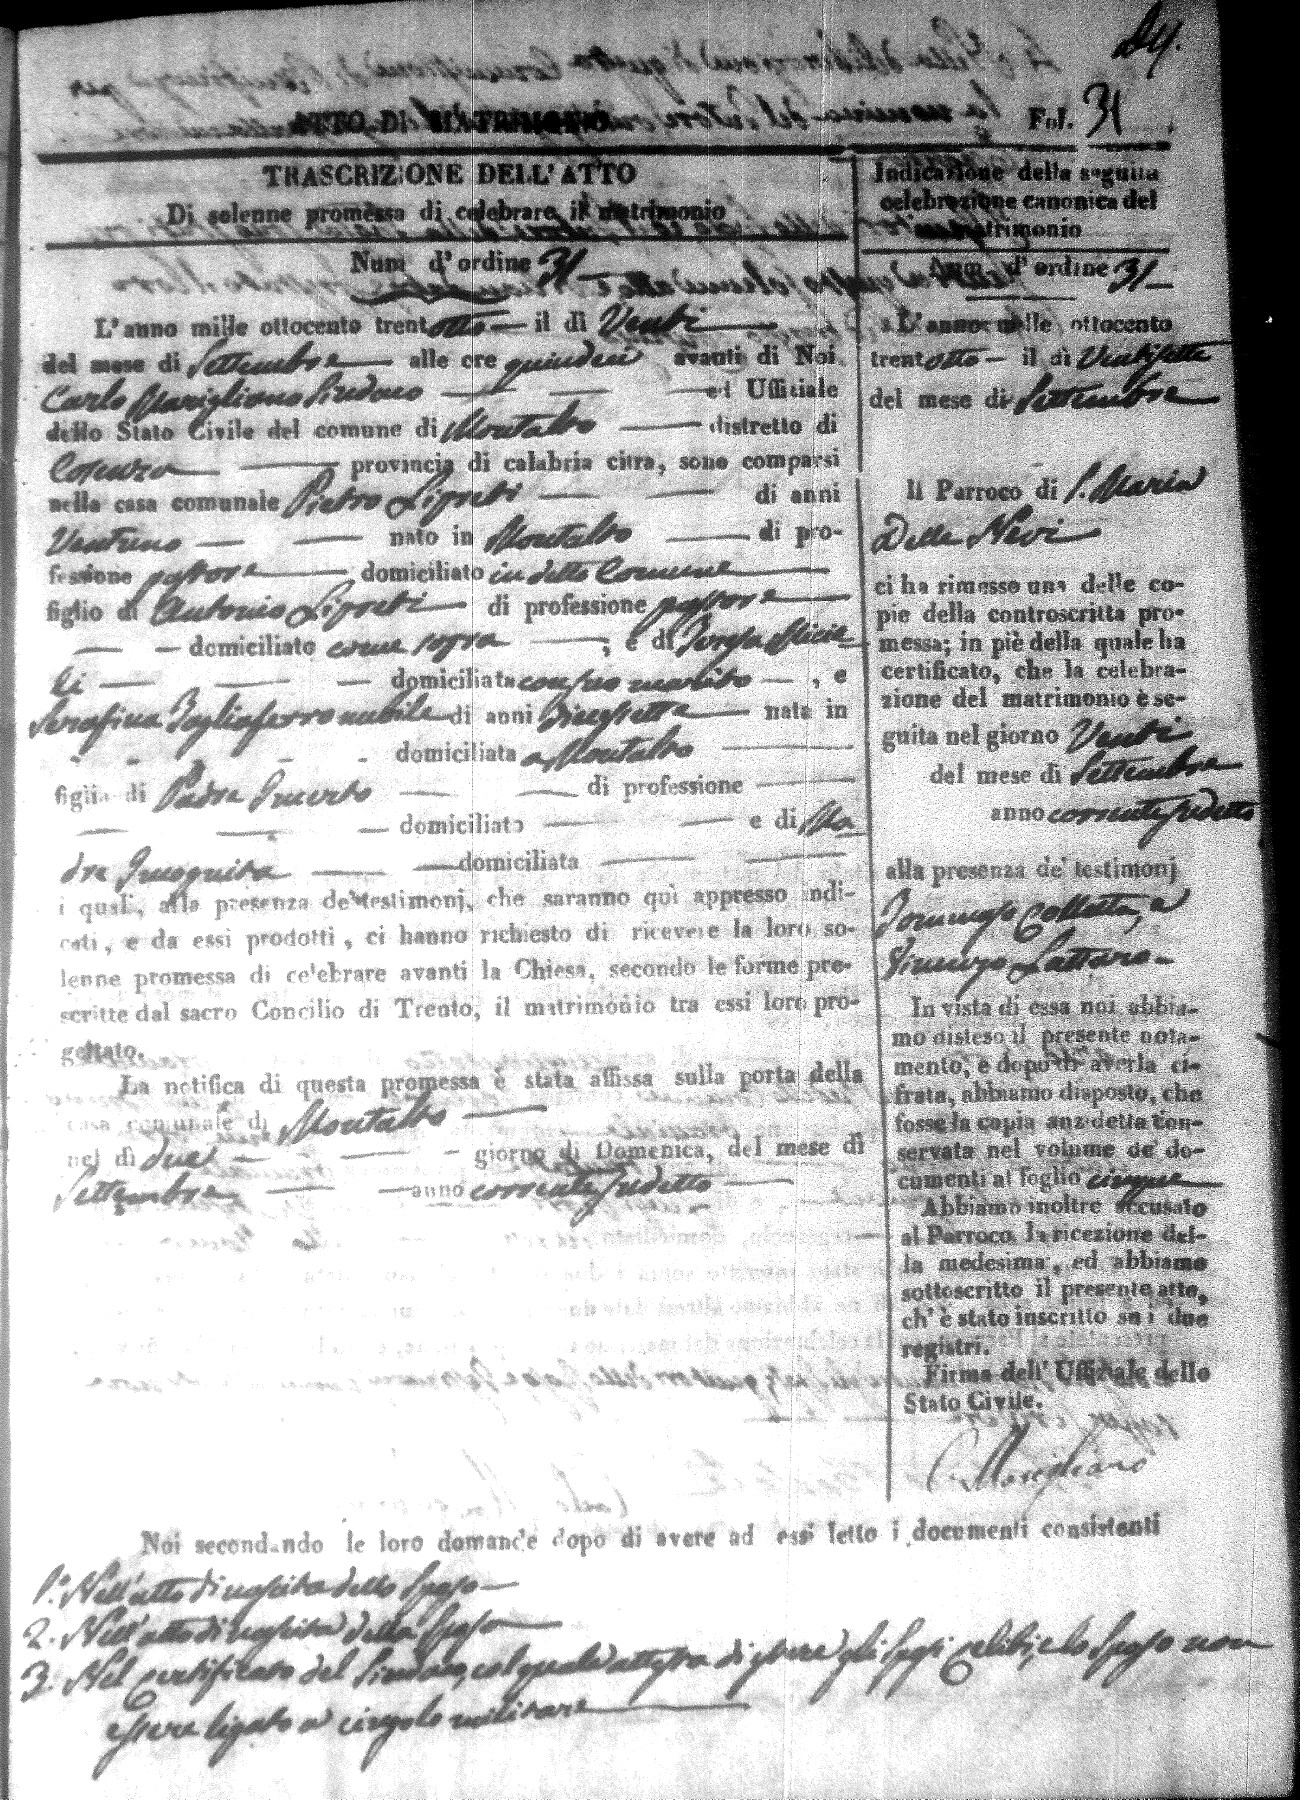 ATTO DI MATRIMONIO
Fol. 31
TRASCRIZIONE DELL'ATTO
Di solenne promessa di celebrare il matrimonio
Num d'ordine 31
L'anno mille ottocento trentotto il dì Venti
del mese di Settembre alle ore quindici avanti di Noi
Carlo Marigliano Sindaco ed Ufficiale
dello Stato Civile del comune di Montalto distretto di
Cosenza provincia di calabria citra, sono comparsi
nella casa comunale Pietro di anni
Ventuno nato in Montalto di pro-
fessione pastore domiciliato in detto Comune
figlio di Antonio di professione pastore
domiciliato come sopra , e di Teresa
li domiciliata con suo marito , e
Serafina Tagliaferro nubile di anni nata in
domiciliata a Montalto
figlia di Padre Incerto di professione
domiciliato e di Ma
dre Incognita domiciliata
i quali, alla presenza de' testimonj, che saranno quì appresso indi-
cati, e da essi prodotti, ci hanno richiesto di ricevere la loro so-
lenne promessa di celebrare avanti la Chiesa, secondo le forme pre-
scritte dal sacro Concilio di Trento, il matrimonio tra essi loro pro-
gettato.
La notifica di questa promessa è stata affissa sulla porta della
casa comunale di Montalto
nel dì due giorno di Domenica, del mese di
Settembre anno corrente sudetto
Indicazione della seguita
celebrazione canonica del
matrimonio
Num. d'ordine 31
L'anno mille ottocento
trentotto il dì Ventisette
del mese di Settembre
Il Parroco di S. Maria
Delle Nevi
ci ha rimesso una delle co-
pie della controscritta pro-
messa; in piè della quale ha
certificato, che la celebra-
zione del matrimonio è se-
guita nel giorno Venti
del mese di Settembre
anno corrente sudetto
alla presenza de' testimonj
Tommaso Colletta, e
Vincenzo Lattaro
In vista di essa noi abbia-
mo disteso il presente nota-
mento, e dopo di averla ci-
frata, abbiamo disposto, che
fosse la copia anzdetta con-
servata nel volume de' do-
cumenti al foglio cinque
Abbiamo inoltre accusato
al Parroco la ricezione del-
la medesima, ed abbiamo
sottoscritto il presente atto,
ch'è stato inscritto su i due
registri.
Firma dell' Uffiziale dello
Stato Civile.
C. Marigliano
Noi secondando le loro domande dopo di avere ad essi letto i documenti consistenti
1.° Nell'atto di nascita dello Sposo
2. Nell'atto di nascita della Sposa
3. Nel certificato del Sindaco, col quale attesta di essere gli Sposi celibi, e lo Sposo non
essere ligato a cingolo militare